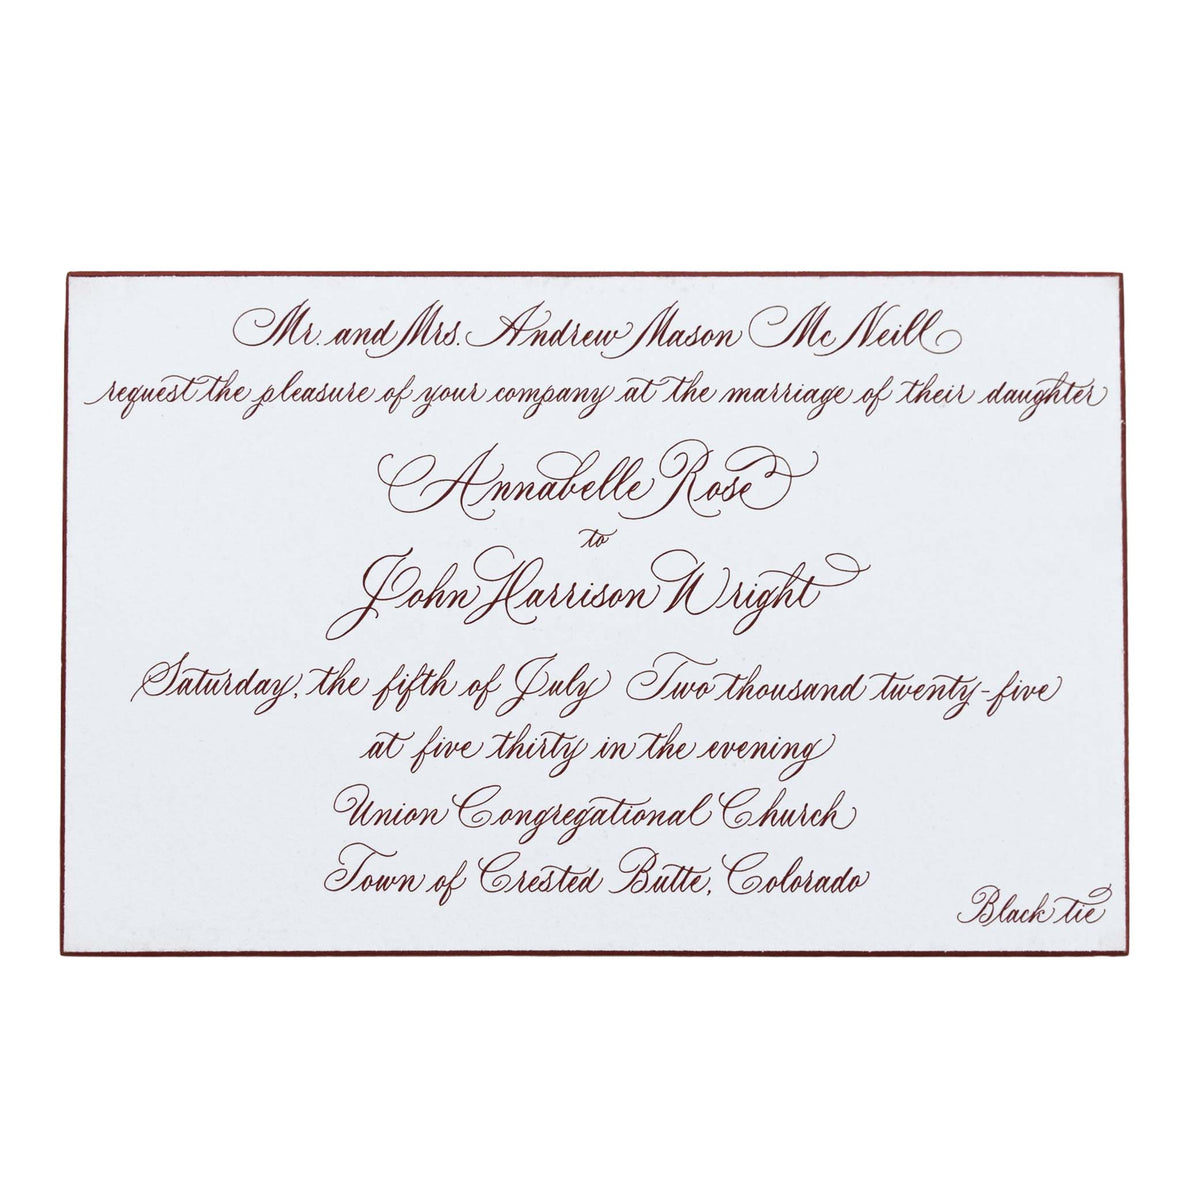 Mr. and Mrs. Andrew Mason McNeill
request the pleasure of your company at the marriage of their daughter
Annabelle Rose
to
John Harrison Wright
Saturday, the fifth of July Two thousand twenty-five
at five thirty in the evening
Union Congregational Church
Town of Crested Butte, Colorado
Black tie